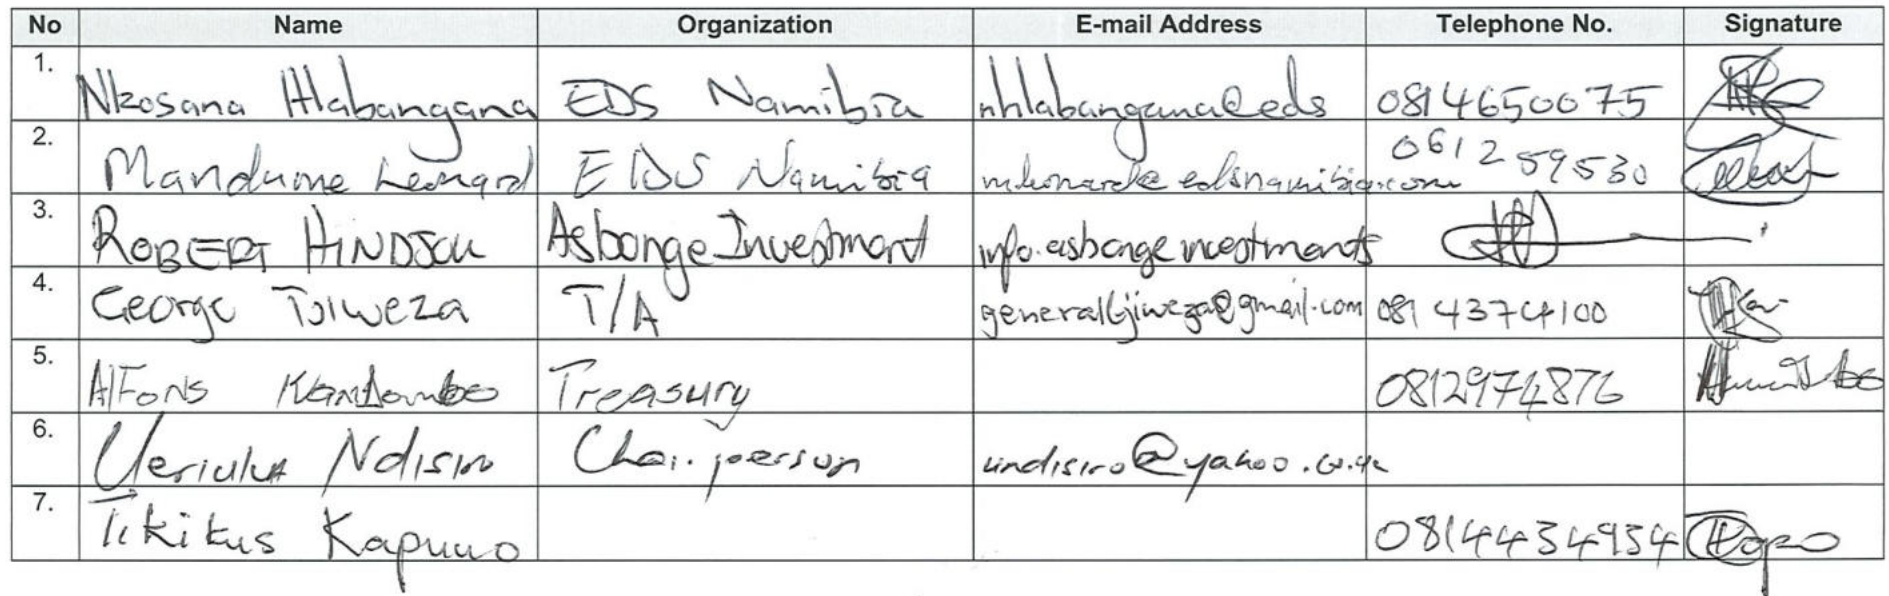 No Name Organization E-mail Address Telephone No. Signature
1. Nkosana Hlabangana EDS Namibia nhlabangana@eds 0814650075
2. Mandume Leonard EDS Namibia mleonard@edsnamibia.com 061259530
3. ROBERT HINDJOU Asbonge Investment info.asbonge investments
4. George Tjiweza T/A generaltjiweza@gmail.com 0814374100
5. AlFons Treasury 0812974876
6. Ndisiro Chairperson undisiro@yahoo.co.uk
7. Tikitus Kapuuo 0814434934